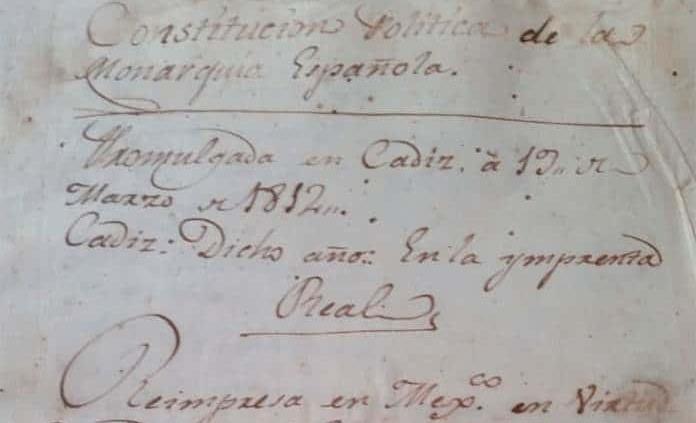 Constitucion Politica de la
Monarquia Española.
Promulgada en Cadiz. à 19,, de
Marzo de 1812,,.
Cadiz: Dicho año: En la ymprenta
Real
Reimpresa en Mex.co en Virtud